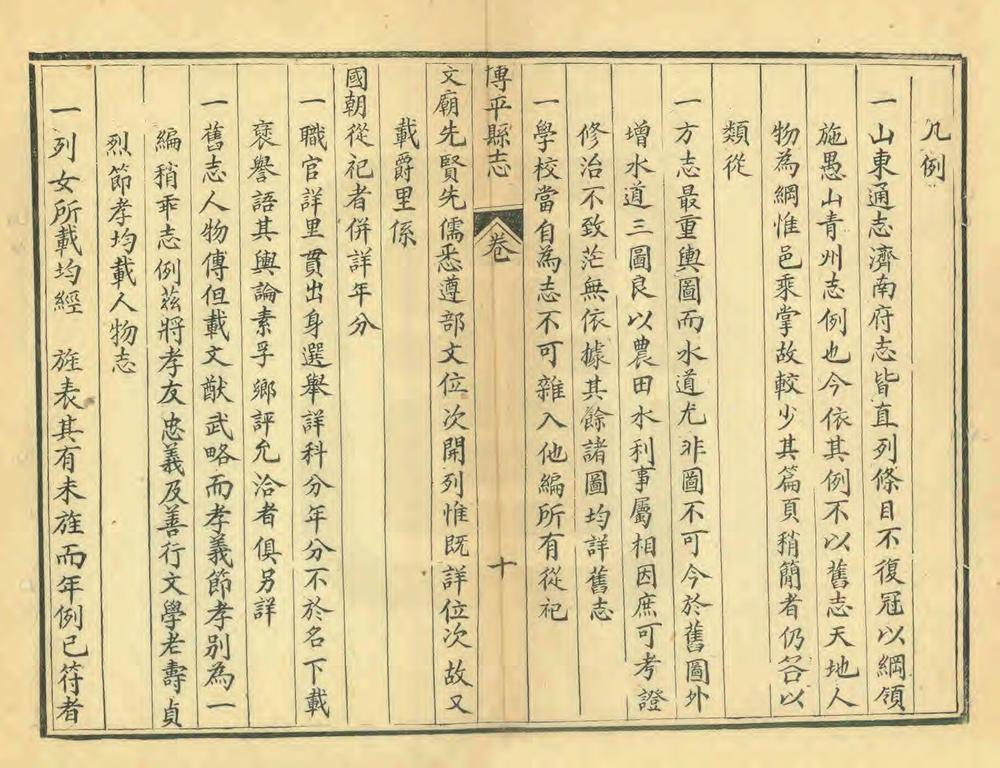 凡例
一山東通志濟南府志皆直列條目不復冠以綱領
施愚山青州志例也今依其例不以舊志天地人
物為綱惟邑乘掌故較少其篇頁稍簡者仍各以
類從
一方志最重輿圖而水道尤非圖不可今於舊圖外
增水道三圖良以農田水利事屬相因庶可考證
修治不致茫無依據其餘諸圖均詳舊志
一學校當自為志不可雜入他編所有從祀
博平縣志 卷 十
文廟先賢先儒悉遵部文位次開列惟既詳位次故又
載爵里係
國朝從祀者併詳年分
一職官詳里貫出身選舉詳科分年分不於名下載
褒譽語其輿論素孚鄉評允洽者俱另詳
一舊志人物傳但載文猷武略而孝義節孝別為一
編稍乖志例茲將孝友忠義及善行文學老壽貞
烈節孝均載人物志
一列女所載均經 旌表其有未旌而年例已符者